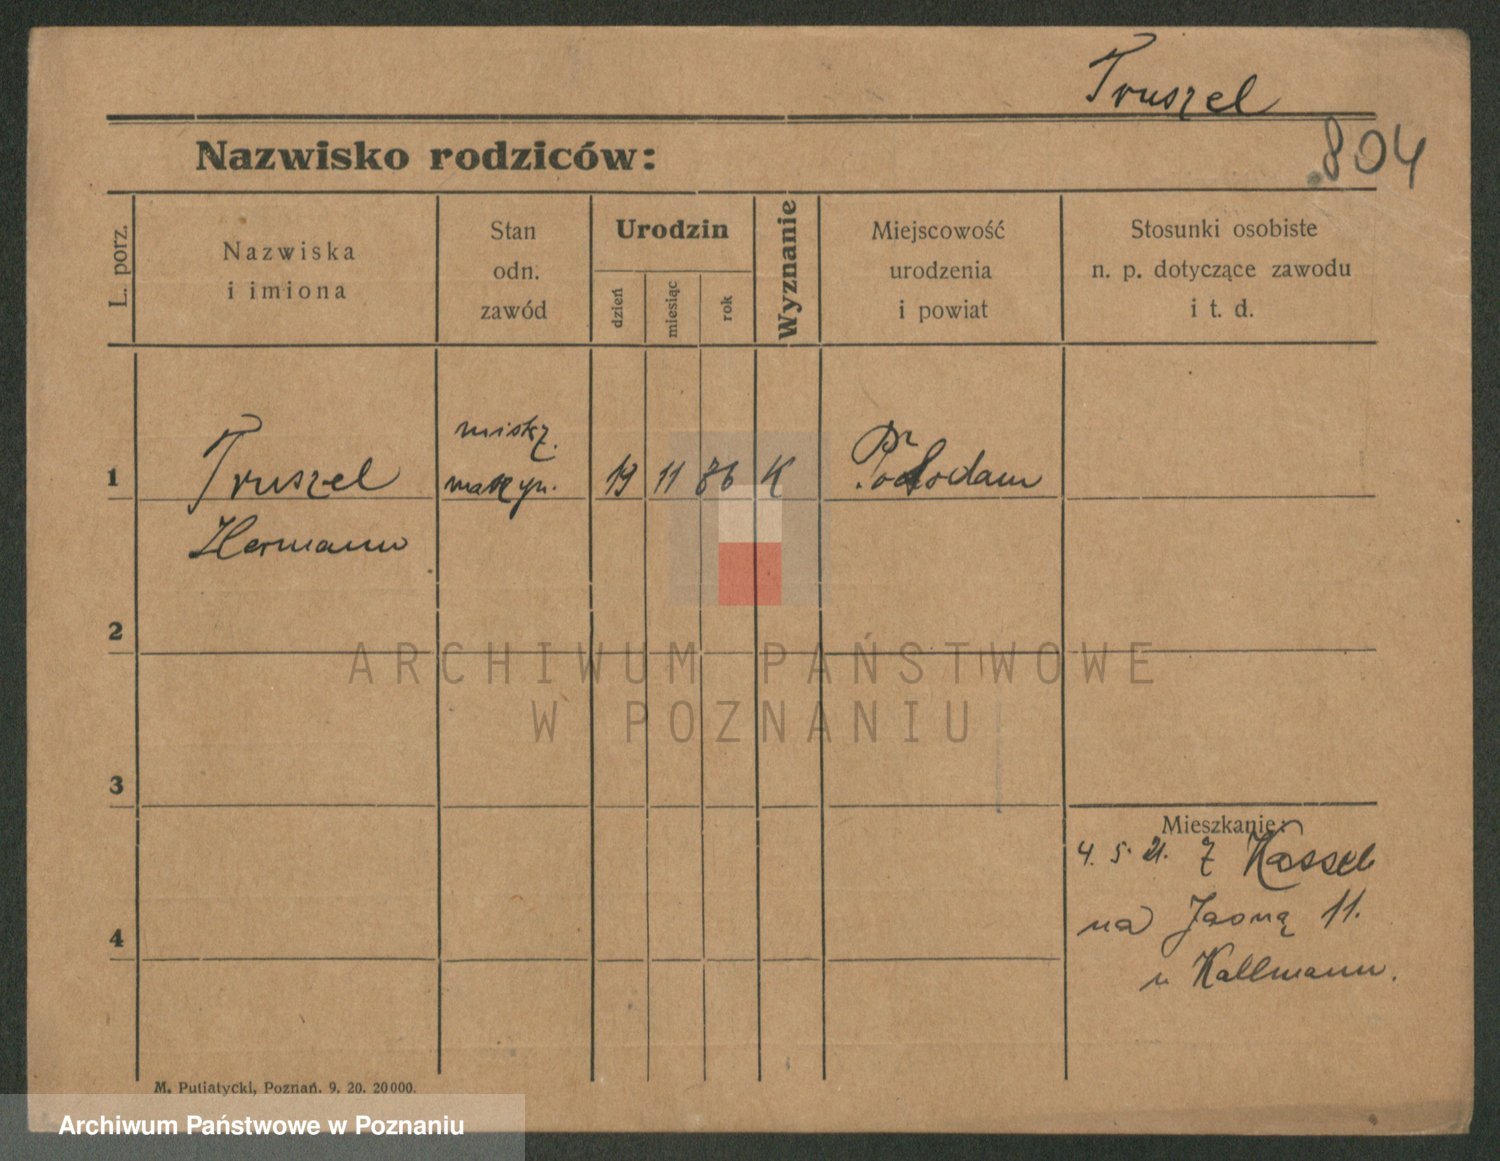 Truszel
804
Nazwisko rodziców:
L. porz.
Nazwiska
i imiona
Stan
odn.
zawód
Urodzin
dzień
miesiąc
rok
Wyznanie
Miejscowość
urodzenia
i powiat
Stosunki osobiste
n. p. dotyczące zawodu
i t. d.
1
Truszel
Hermann
19
11
86
K
2
3
4
Mieszkanie:
4. 5. 21. z Kassel
na Jasną 11.
u Kallmann.
M. Putiatycki, Poznań. 9. 20. 20000.
ARCHIWUM PAŃSTWOWE
W POZNANIU
Archiwum Państwowe w Poznaniu